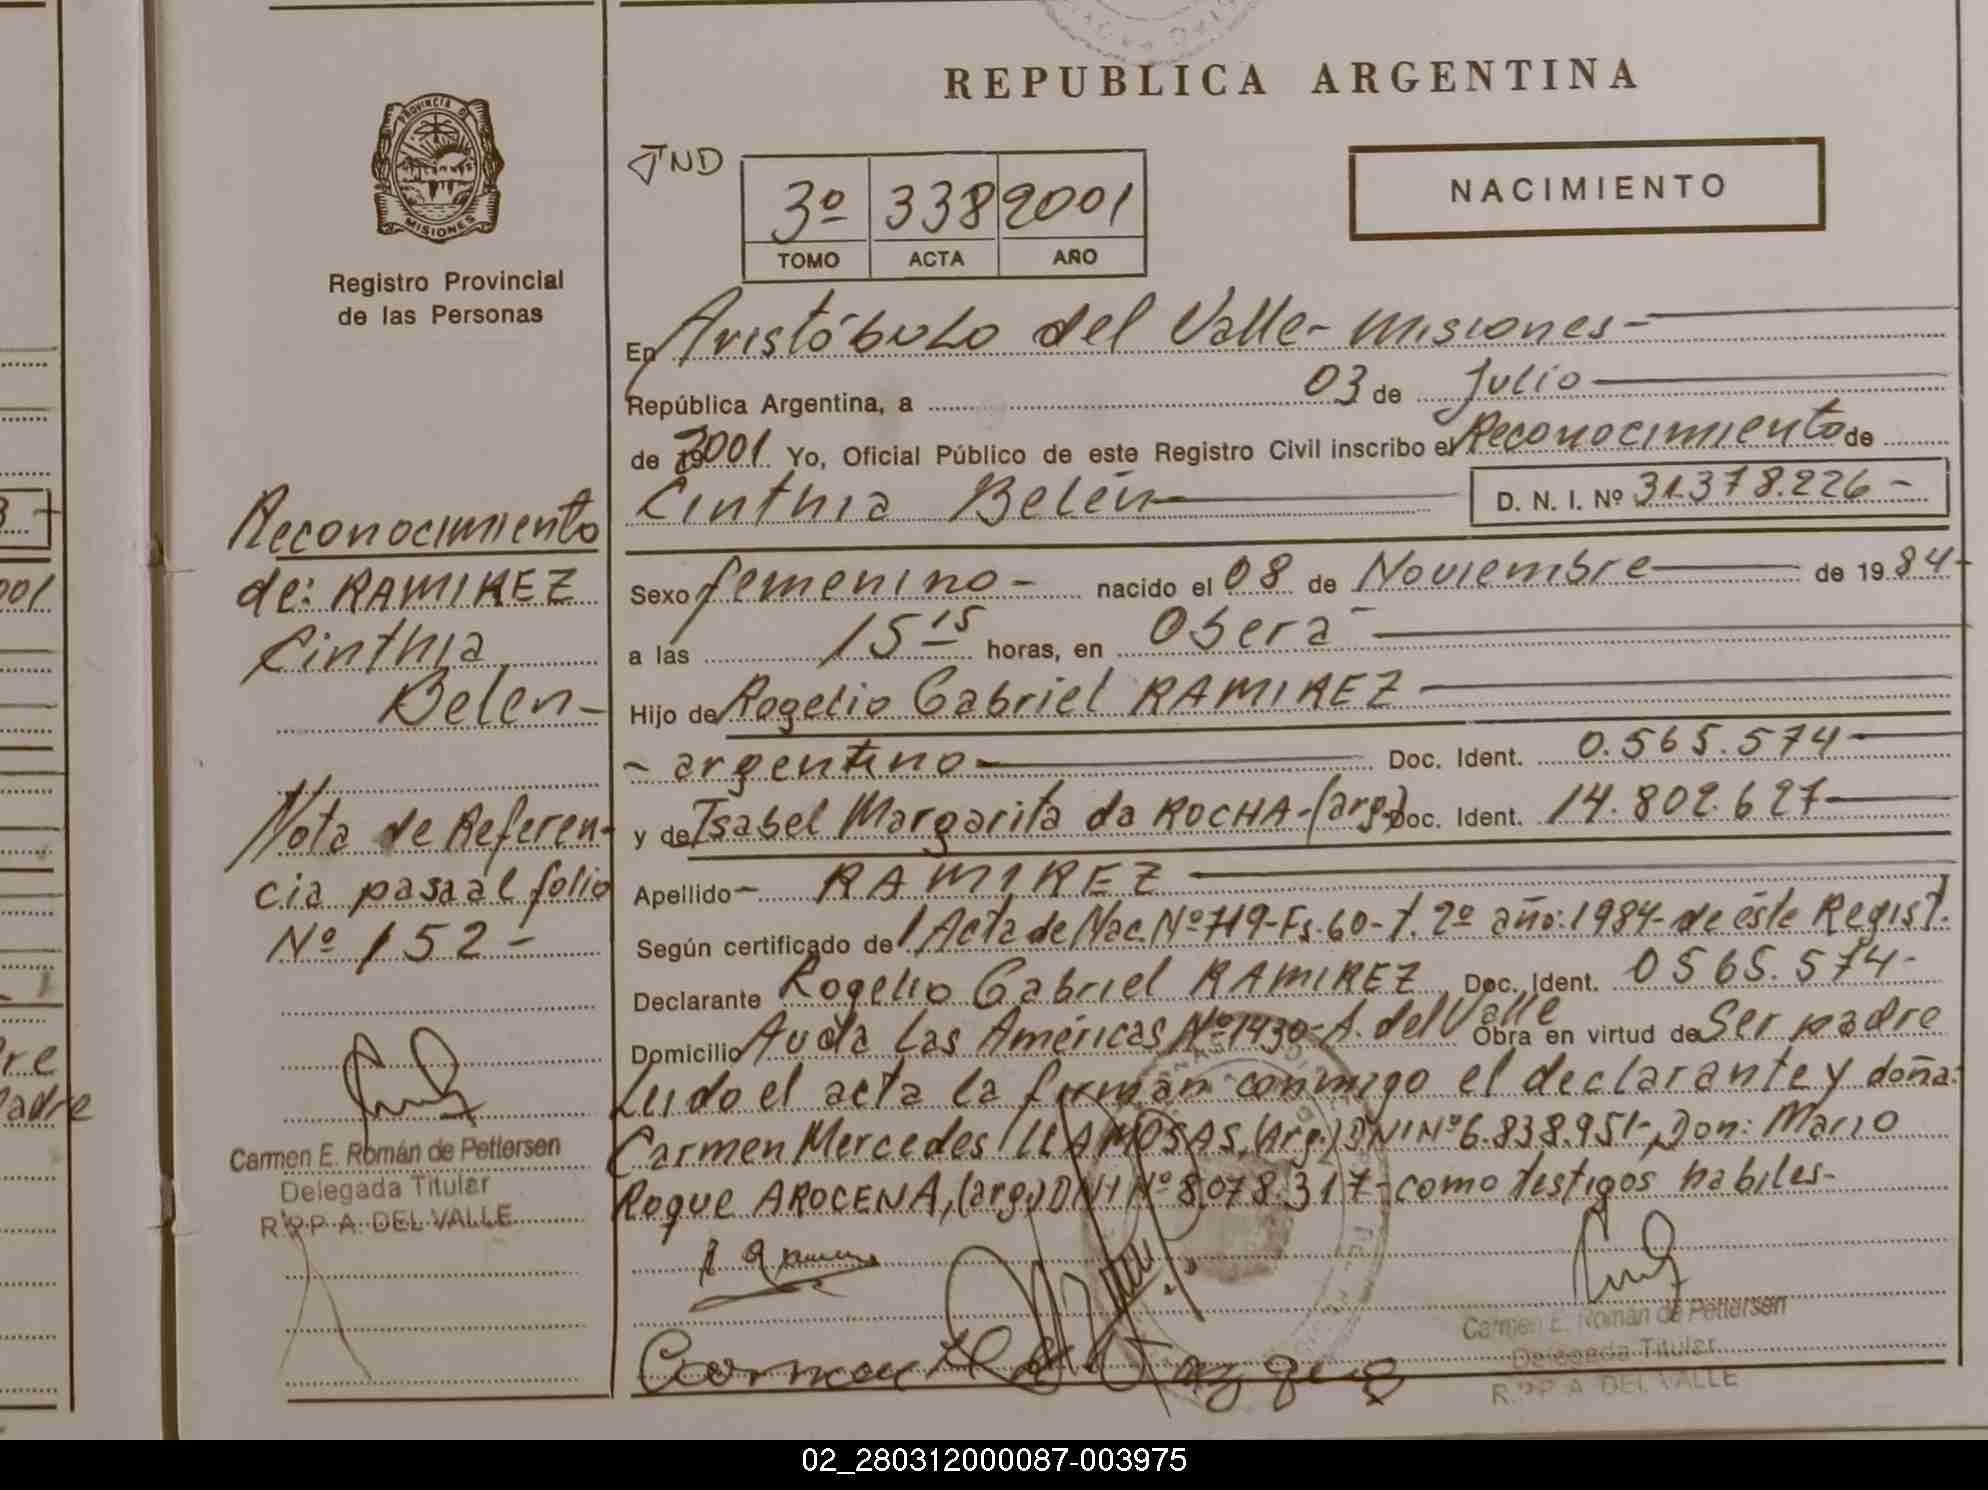 REPUBLICA ARGENTINA
PROVINCIA DE
MISIONES
Registro Provincial
de las Personas
ND
3º 338 2001
TOMO ACTA AÑO
NACIMIENTO
En Aristóbulo del Valle - Misiones -
República Argentina, a 03 de Julio
de 2001 Yo, Oficial Público de este Registro Civil inscribo el Reconocimiento de
Cinthia Belén D. N. I. Nº 31.378.226 -
Sexo femenino - nacido el 08 de Noviembre de 1984 -
a las 15 15 horas, en Oberá -
Hijo de Rogelio Gabriel RAMIREZ
- argentino - Doc. Ident. 0.565.574
y de Isabel Margarita da ROCHA - (arg.) Doc. Ident. 14.802.627
Apellido - RAMIREZ
Según certificado de Acta de Nac. Nº 719 - Fs. 60 - t. 2º año: 1984 - de éste Regist.
Declarante Rogelio Gabriel RAMIREZ Doc. Ident. 0565.574 -
Domicilio Avda Las Américas Nº 1430 - A. del Valle Obra en virtud de Ser padre
Leido el acta la firman conmigo el declarante y doña:
Carmen Mercedes LLAMOSAS, (Arg.) DNI Nº 6.838.951 - Don: Mario
Roque AROCENA, (arg.) DNI Nº 8.078.317 - como testigos habiles -
Carmen E. Román de Pettersen
Delegada Titular
R.P.P. A. DEL VALLE
Reconocimiento
de: RAMIREZ
Cinthia
Belen -
Nota de Referen-
cia pasa al folio
Nº 152 -
Carmen E. Román de Pettersen
Delegada Titular
R.P.P. A. DEL VALLE
02_280312000087-003975